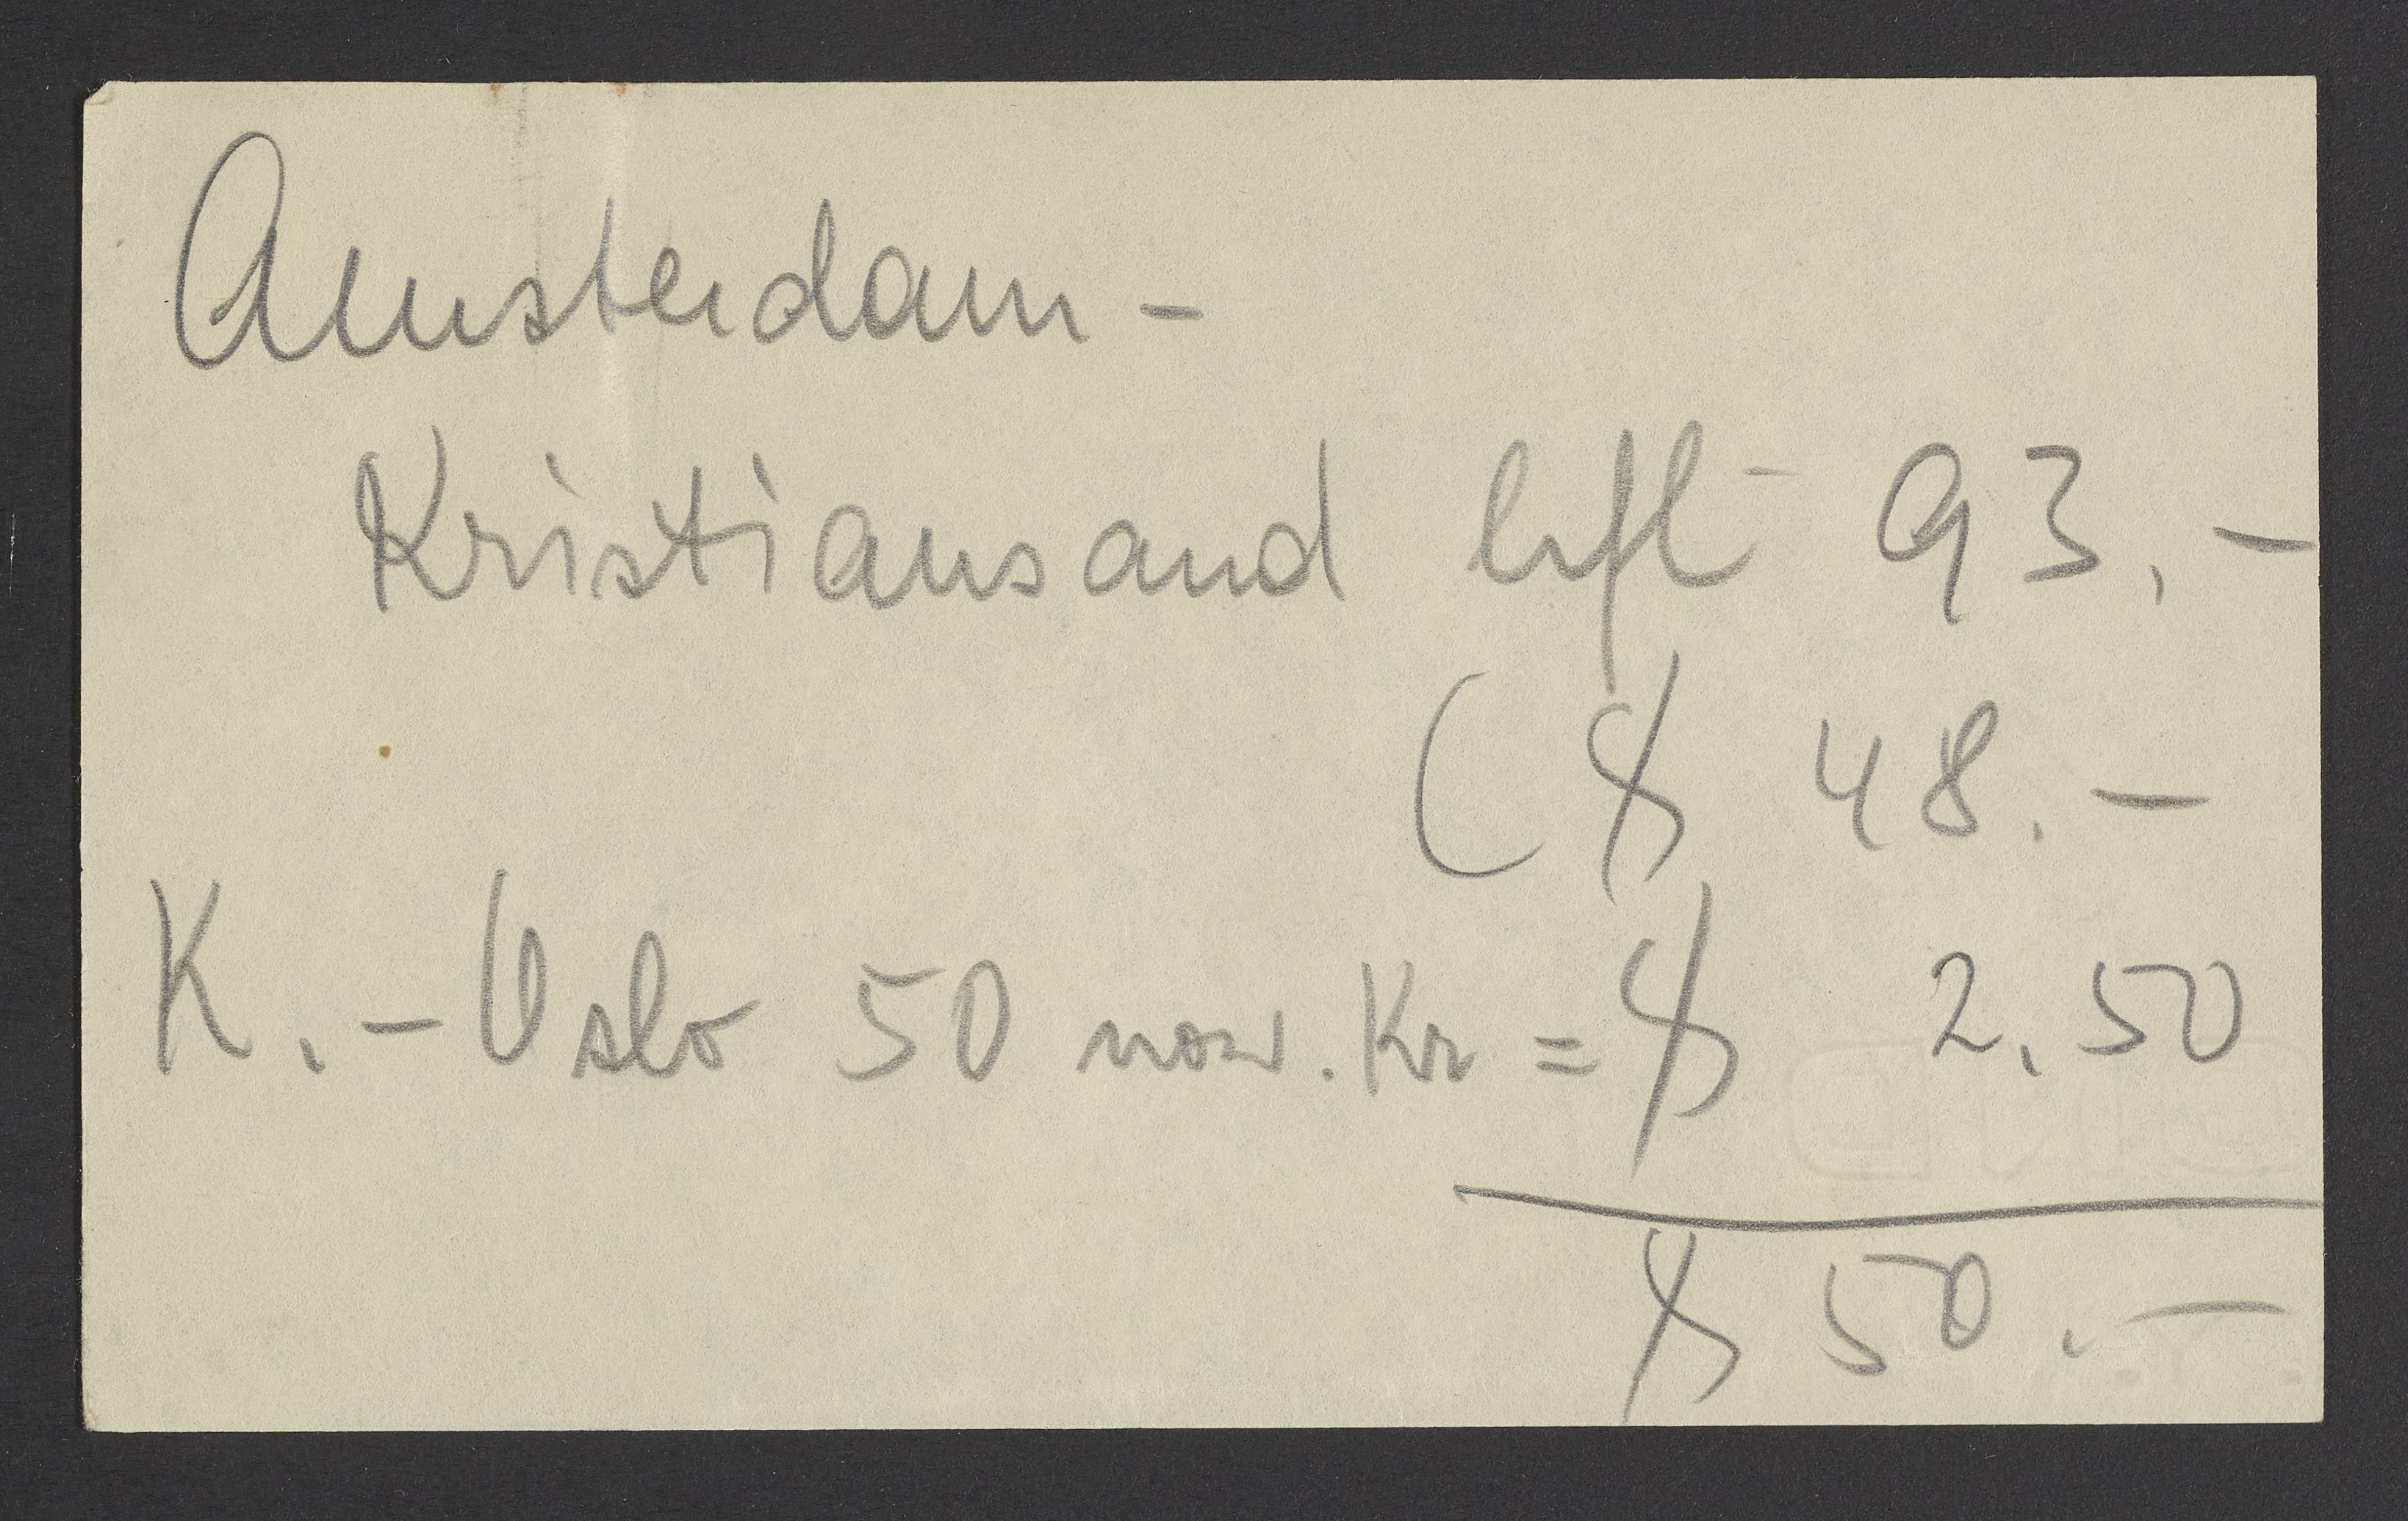 Amsterdam -
Kristiansand hfl 93.-
($ 48.-
K.- Oslo 50 norw. Kr = $ 2,50
$ 50.-